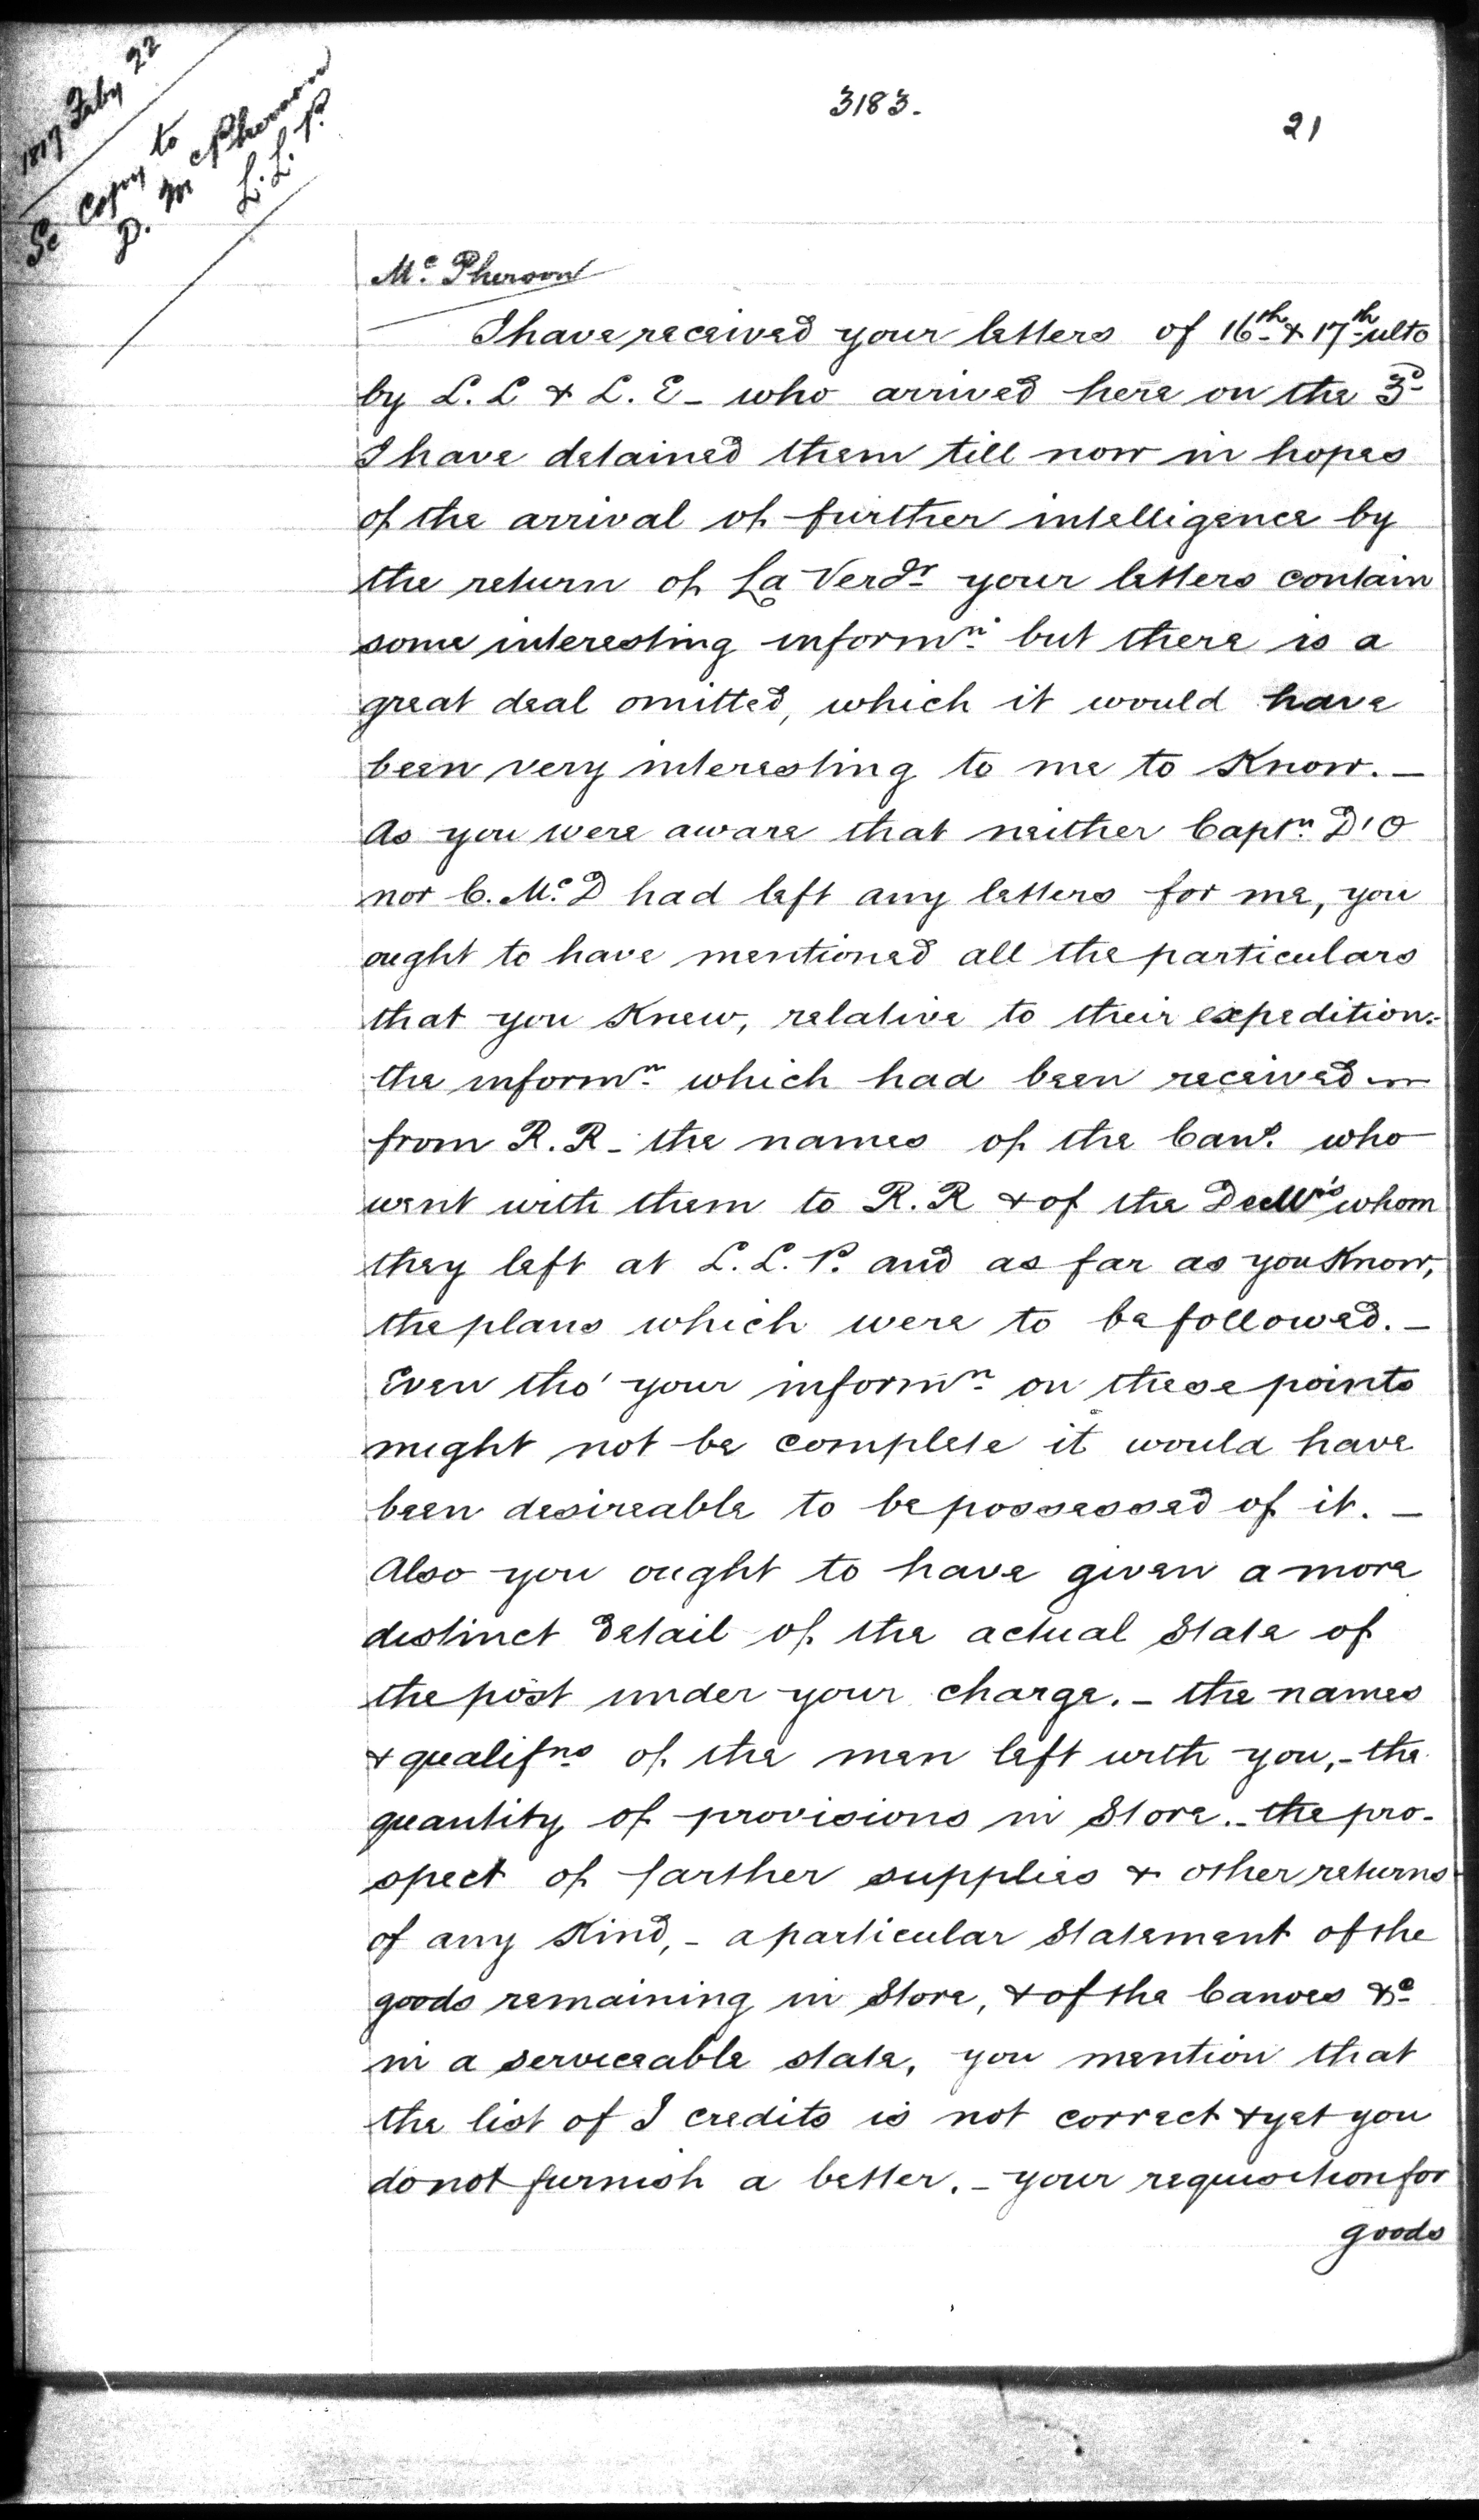 1817 Feby 22
Se Copy to
D. McPherson
L. L. P.
3183.
21
Mc. Pherson
I have received your letters of 16th & 17th ulto
by L. L & L. E - who arrived here on the 3d
I have detained them till now in hopes
of the arrival of further intelligence by
the return of La Verdr your letters contain
some interesting informn but there is a
great deal omitted, which it would have
been very interesting to me to Know. -
As you were aware that neither Captn D'O
nor C. Mc. D had left any letters for me, you
ought to have mentioned all the particulars
that you Knew, relative to their expedition:
the informn which had been received
from R. R - the names of the Cans. who
went with them to R. R & of the whom
they left at L. L. P. and as far as you Know,
the plans which were to be followed. -
Even tho' your informn on these points
might not be complete it would have
been desireable to be possessed of it. -
Also you ought to have given a more
distinct detail of the actual State of
the post under your charge. - the names
& qualifns of the men left with you, - the
quantity of provisions in Store. - the pro-
spect of farther supplies & other returns
of any Kind, - a particular Statement of the
goods remaining in Store, & of the Canoes &c
in a serviceable state, you mention that
the list of I credits is not correct & yet you
do not furnish a better. - your requisition for
goods